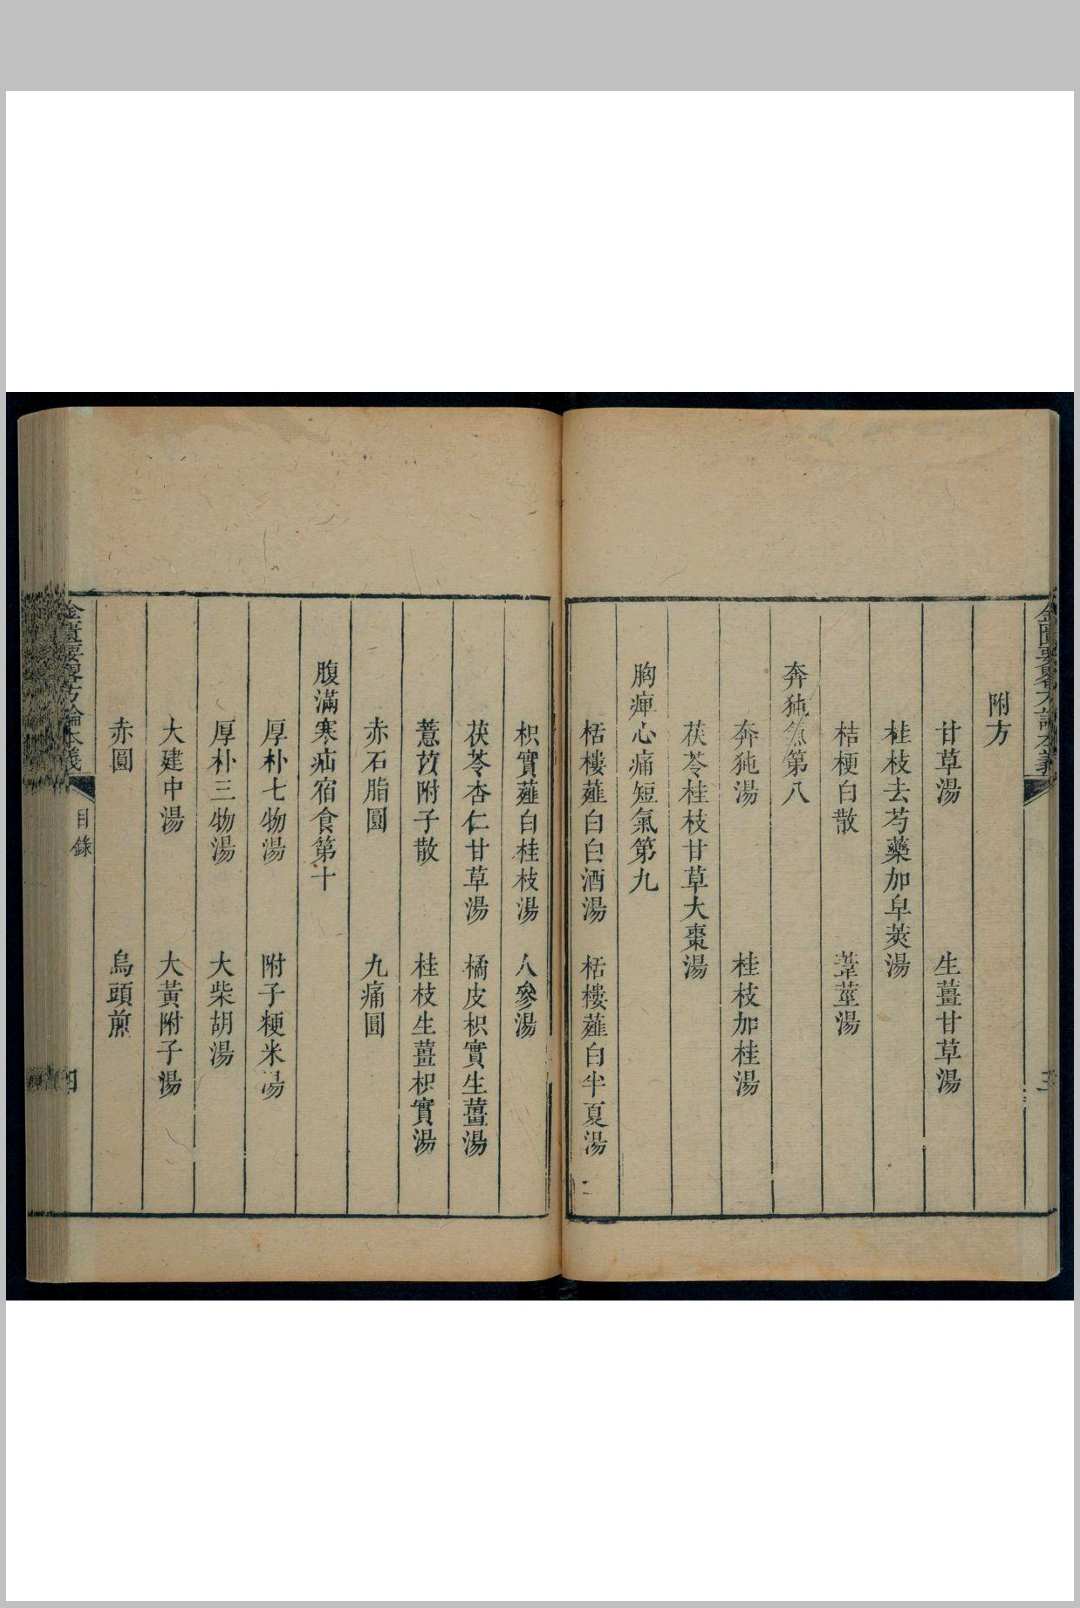 金匱要畧方論本義
三
附方
甘草湯 生薑甘草湯
桂枝去芍藥加皁莢湯
桔梗白散 葦莖湯
奔㹠氣第八
奔㹠湯 桂枝加桂湯
茯苓桂枝甘草大棗湯
胸痺心痛短氣第九
栝樓薤白白酒湯 栝樓薤白半夏湯
枳實薤白桂枝湯 人參湯
茯苓杏仁甘草湯 橘皮枳實生薑湯
薏苡附子散 桂枝生薑枳實湯
赤石脂圓 九痛圓
腹滿寒疝宿食第十
厚朴七物湯 附子粳米湯
厚朴三物湯 大柴胡湯
大建中湯 大黃附子湯
赤圓 烏頭煎
金匱要畧方論本義
目錄
四